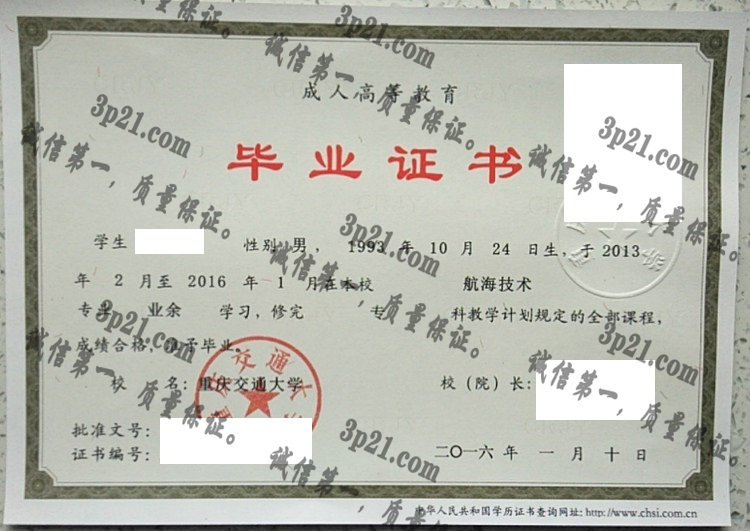 成人高等教育
毕业证书
学生 性别 男 ， 1993 年 10 月 24 日生，于 2013
年 2 月至 2016 年 1 月在本校 航海技术
专业 业余 学习，修完 专 科教学计划规定的全部课程，
成绩合格，准予毕业。
校 名：重庆交通大学
校（院）长：
批准文号：
证书编号：
二〇一六年 一 月 十 日
中华人民共和国学历证书查询网址：http://www.chsi.com.cn
3p21.com
诚信第一，质量保证。
3p21.com
诚信第一，质量保证。
3p21.com
诚信第一，质量保证。
3p21.com
诚信第一，质量保证。
3p21.com
诚信第一，质量保证。
3p21.com
诚信第一，质量保证。
3p21.com
诚信第一，质量保证。
3p21.com